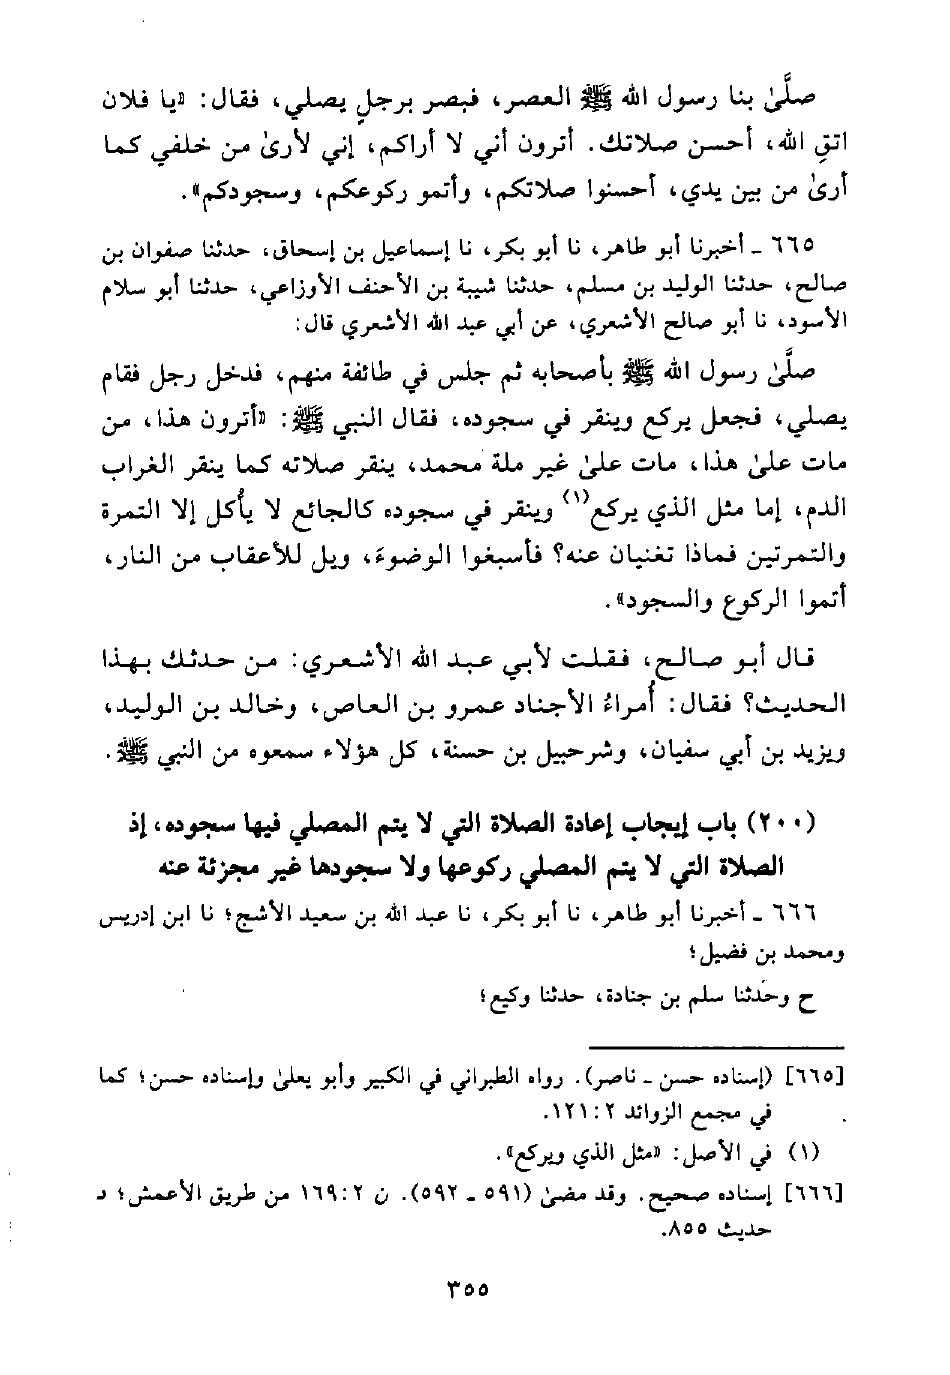 صلَّىٰ بنا رسول الله ﷺ العصر، فبصر برجلٍ يصلي، فقال: «يا فلان
اتقِ الله، أحسن صلاتك. أترون أني لا أراكم، إني لأرىٰ من خلفي كما
أرىٰ من بين يدي، أحسنوا صلاتكم، وأتمو ركوعكم، وسجودكم».
٦٦٥ ـ أخبرنا أبو طاهر، نا أبو بكر، نا إسماعيل بن إسحاق، حدثنا صفوان بن
صالح، حدثنا الوليد بن مسلم، حدثنا شيبة بن الأحنف الأوزاعي، حدثنا أبو سلام
الأسود، نا أبو صالح الأشعري، عن أبي عبد الله الأشعري قال:
صلَّىٰ رسول الله ﷺ بأصحابه ثم جلس في طائفة منهم، فدخل رجل فقام
يصلي، فجعل يركع وينقر في سجوده، فقال النبي ﷺ: «أترون هذا، من
مات علىٰ هذا، مات علىٰ غير ملة محمد، ينقر صلاته كما ينقر الغراب
الدم، إما مثل الذي يركع(١) وينقر في سجوده كالجائع لا يأكل إلا التمرة
والتمرتين فماذا تغنيان عنه؟ فأسبغوا الوضوءَ، ويل للأعقاب من النار،
أتموا الركوع والسجود».
قال أبو صالح، فقلت لأبي عبد الله الأشعري: من حدثك بهذا
الحديث؟ فقال: أُمراءُ الأجناد عمرو بن العاص، وخالد بن الوليد،
ويزيد بن أبي سفيان، وشرحبيل بن حسنة، كل هؤلاء سمعوه من النبي ﷺ.
(٢٠٠) باب إيجاب إعادة الصلاة التي لا يتم المصلي فيها سجوده، إذ
الصلاة التي لا يتم المصلي ركوعها ولا سجودها غير مجزئة عنه
٦٦٦ ـ أخبرنا أبو طاهر، نا أبو بكر، نا عبد الله بن سعيد الأشج؛ نا ابن إدريس
ومحمد بن فضيل؛
ح وحدثنا سلم بن جنادة، حدثنا وكيع؛
[٦٦٥] (إسناده حسن ـ ناصر). رواه الطبراني في الكبير وأبو يعلىٰ وإسناده حسن؛ كما
في مجمع الزوائد ٢: ١٢١.
(١) في الأصل: «مثل الذي ويركع».
[٦٦٦] إسناده صحيح. وقد مضىٰ (٥٩١ ـ ٥٩٢). ن ٢: ١٦٩ من طريق الأعمش؛ د
حديث ٨٥٥.
٣٥٥